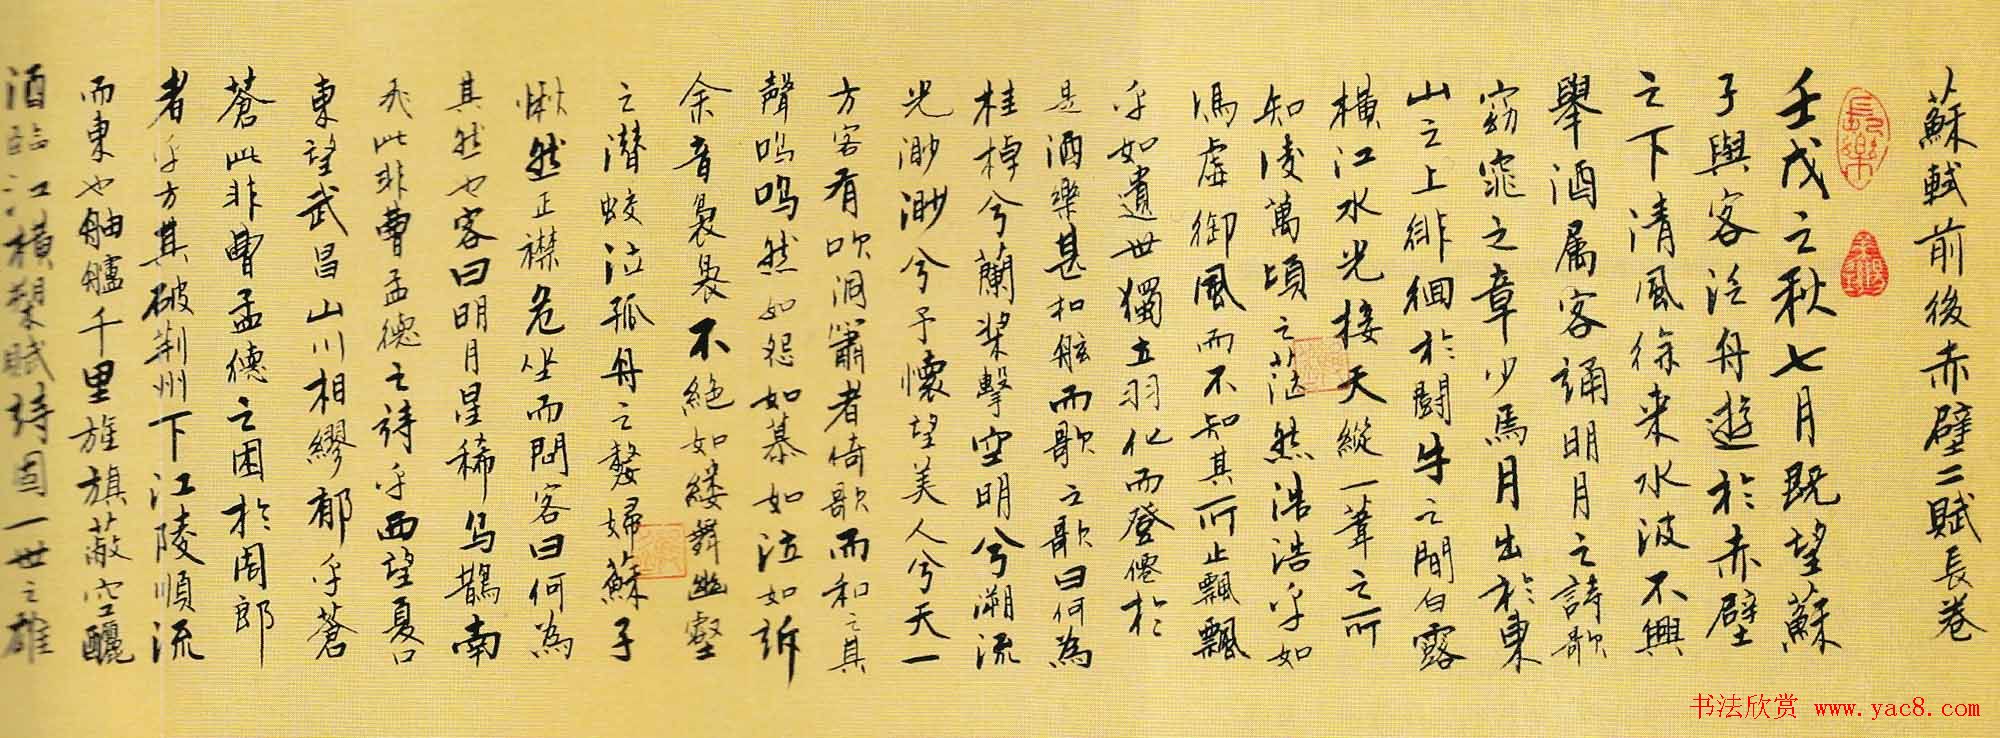 蘇軾前後赤壁二賦長卷
長樂
壬戌之秋七月既望蘇
子與客泛舟遊於赤壁
之下清風徐来水波不興
舉酒属客誦明月之詩歌
窈窕之章少焉月出於東
山之上徘徊於鬭牛之間白露
橫江水光接天縱一葦之所
如凌萬頃之茫然浩浩乎如
馮虛御風而不知其所止飄飄
乎如遺世獨立羽化而登僊於
是酒樂甚扣舷而歌之歌曰何為
桂棹兮蘭槳擊空明兮溯流
光渺渺兮予懷望美人兮天一
方客有吹洞簫者倚歌而和之其
聲嗚嗚然如怨如慕如泣如訴
余音裊裊不絕如縷舞幽壑
之潛蛟泣孤舟之嫠婦蘇子
愀然正襟危坐而問客曰何為
其然也客曰明月星稀烏鵲南
飛此非曹孟德之詩乎西望夏口
東望武昌山川相繆郁乎蒼
蒼此非曹孟德之困於周郎
者乎方其破荆州下江陵順流
而東也舳艫千里旌旗蔽空釃
酒臨江橫槊賦詩固一世之雄
书法欣赏 www.yac8.com